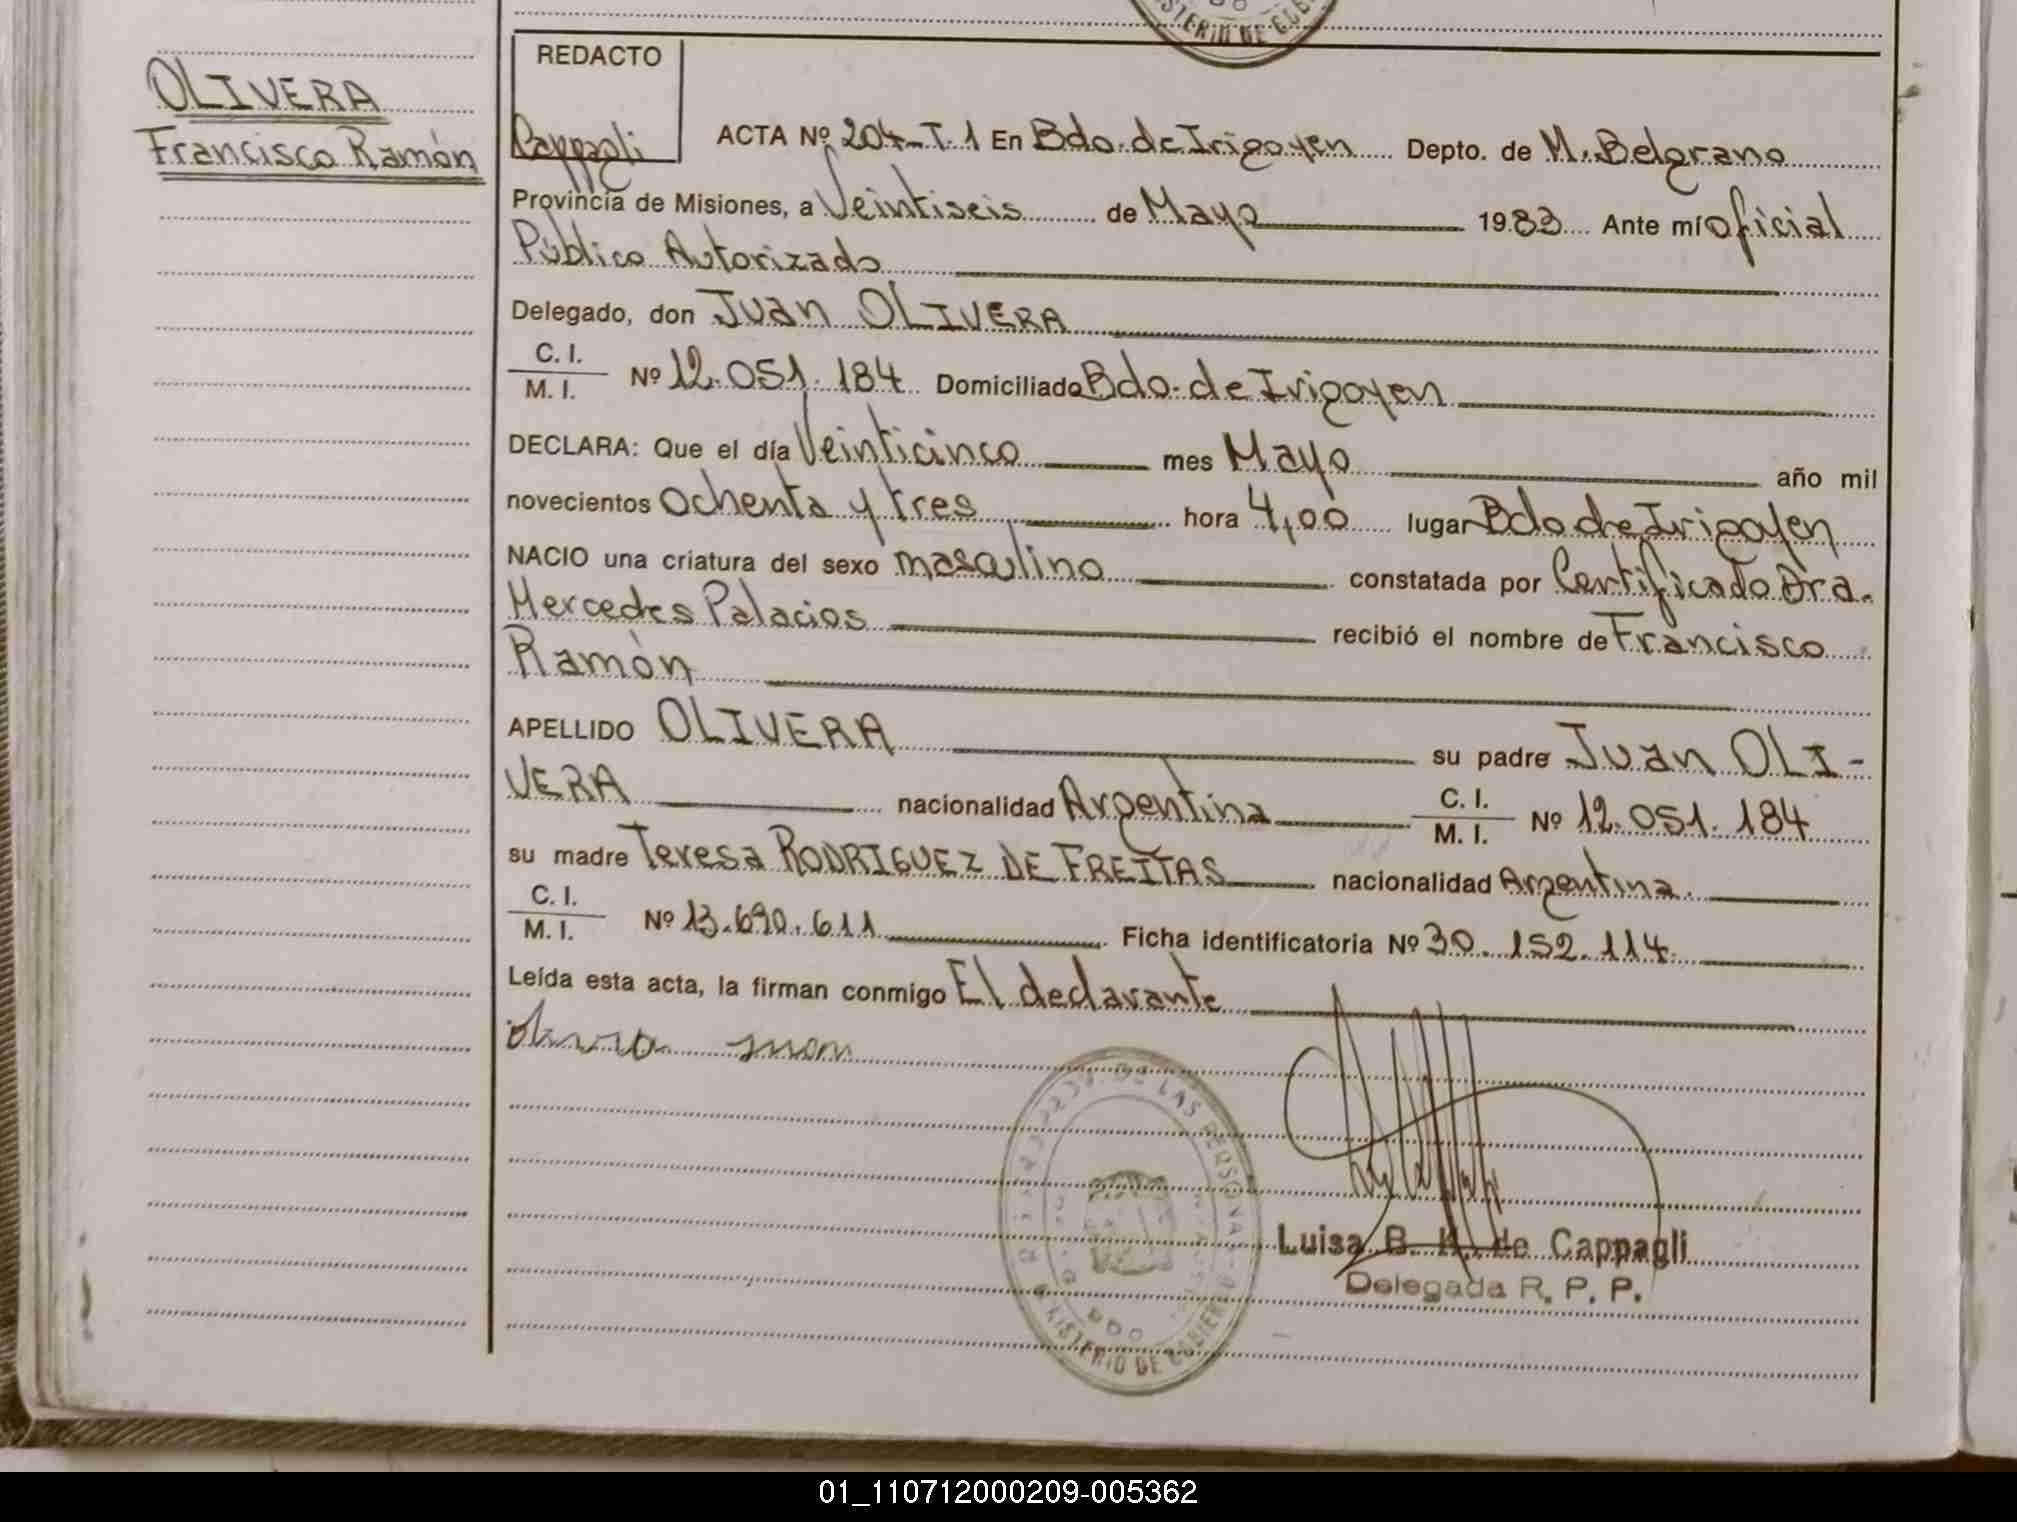 OLIVERA
Francisco Ramón
REDACTO
Cappagli
ACTA Nº 204-T.1 En Bdo. de Irigoyen Depto. de M. Belgrano
Provincia de Misiones, a Veintiseis de Mayo 1983 Ante mí Oficial
Público Autorizado
Delegado, don Juan OLIVERA
C. I.
M. I. Nº 12.051.184 Domiciliado Bdo. de Irigoyen
DECLARA: Que el día Veinticinco mes Mayo año mil
novecientos Ochenta y tres hora 4,00 lugar Bdo de Irigoyen
NACIO una criatura del sexo masculino constatada por Certificado Dra.
Mercedes Palacios recibió el nombre de Francisco
Ramón
APELLIDO OLIVERA su padre Juan OLI-
VERA nacionalidad Argentina C. I. M. I. Nº 12.051.184
su madre Teresa RODRIGUEZ DE FREITAS nacionalidad Argentina.
C. I.
M. I. Nº 13.690.611 Ficha identificatoria Nº 30.152.114
Leída esta acta, la firman conmigo El declarante
olivera Juan
DE LAS PERSONAS
MINISTERIO DE GOBIERNO
Luisa B. K. de Cappagli
Delegada R. P. P.
01_110712000209-005362